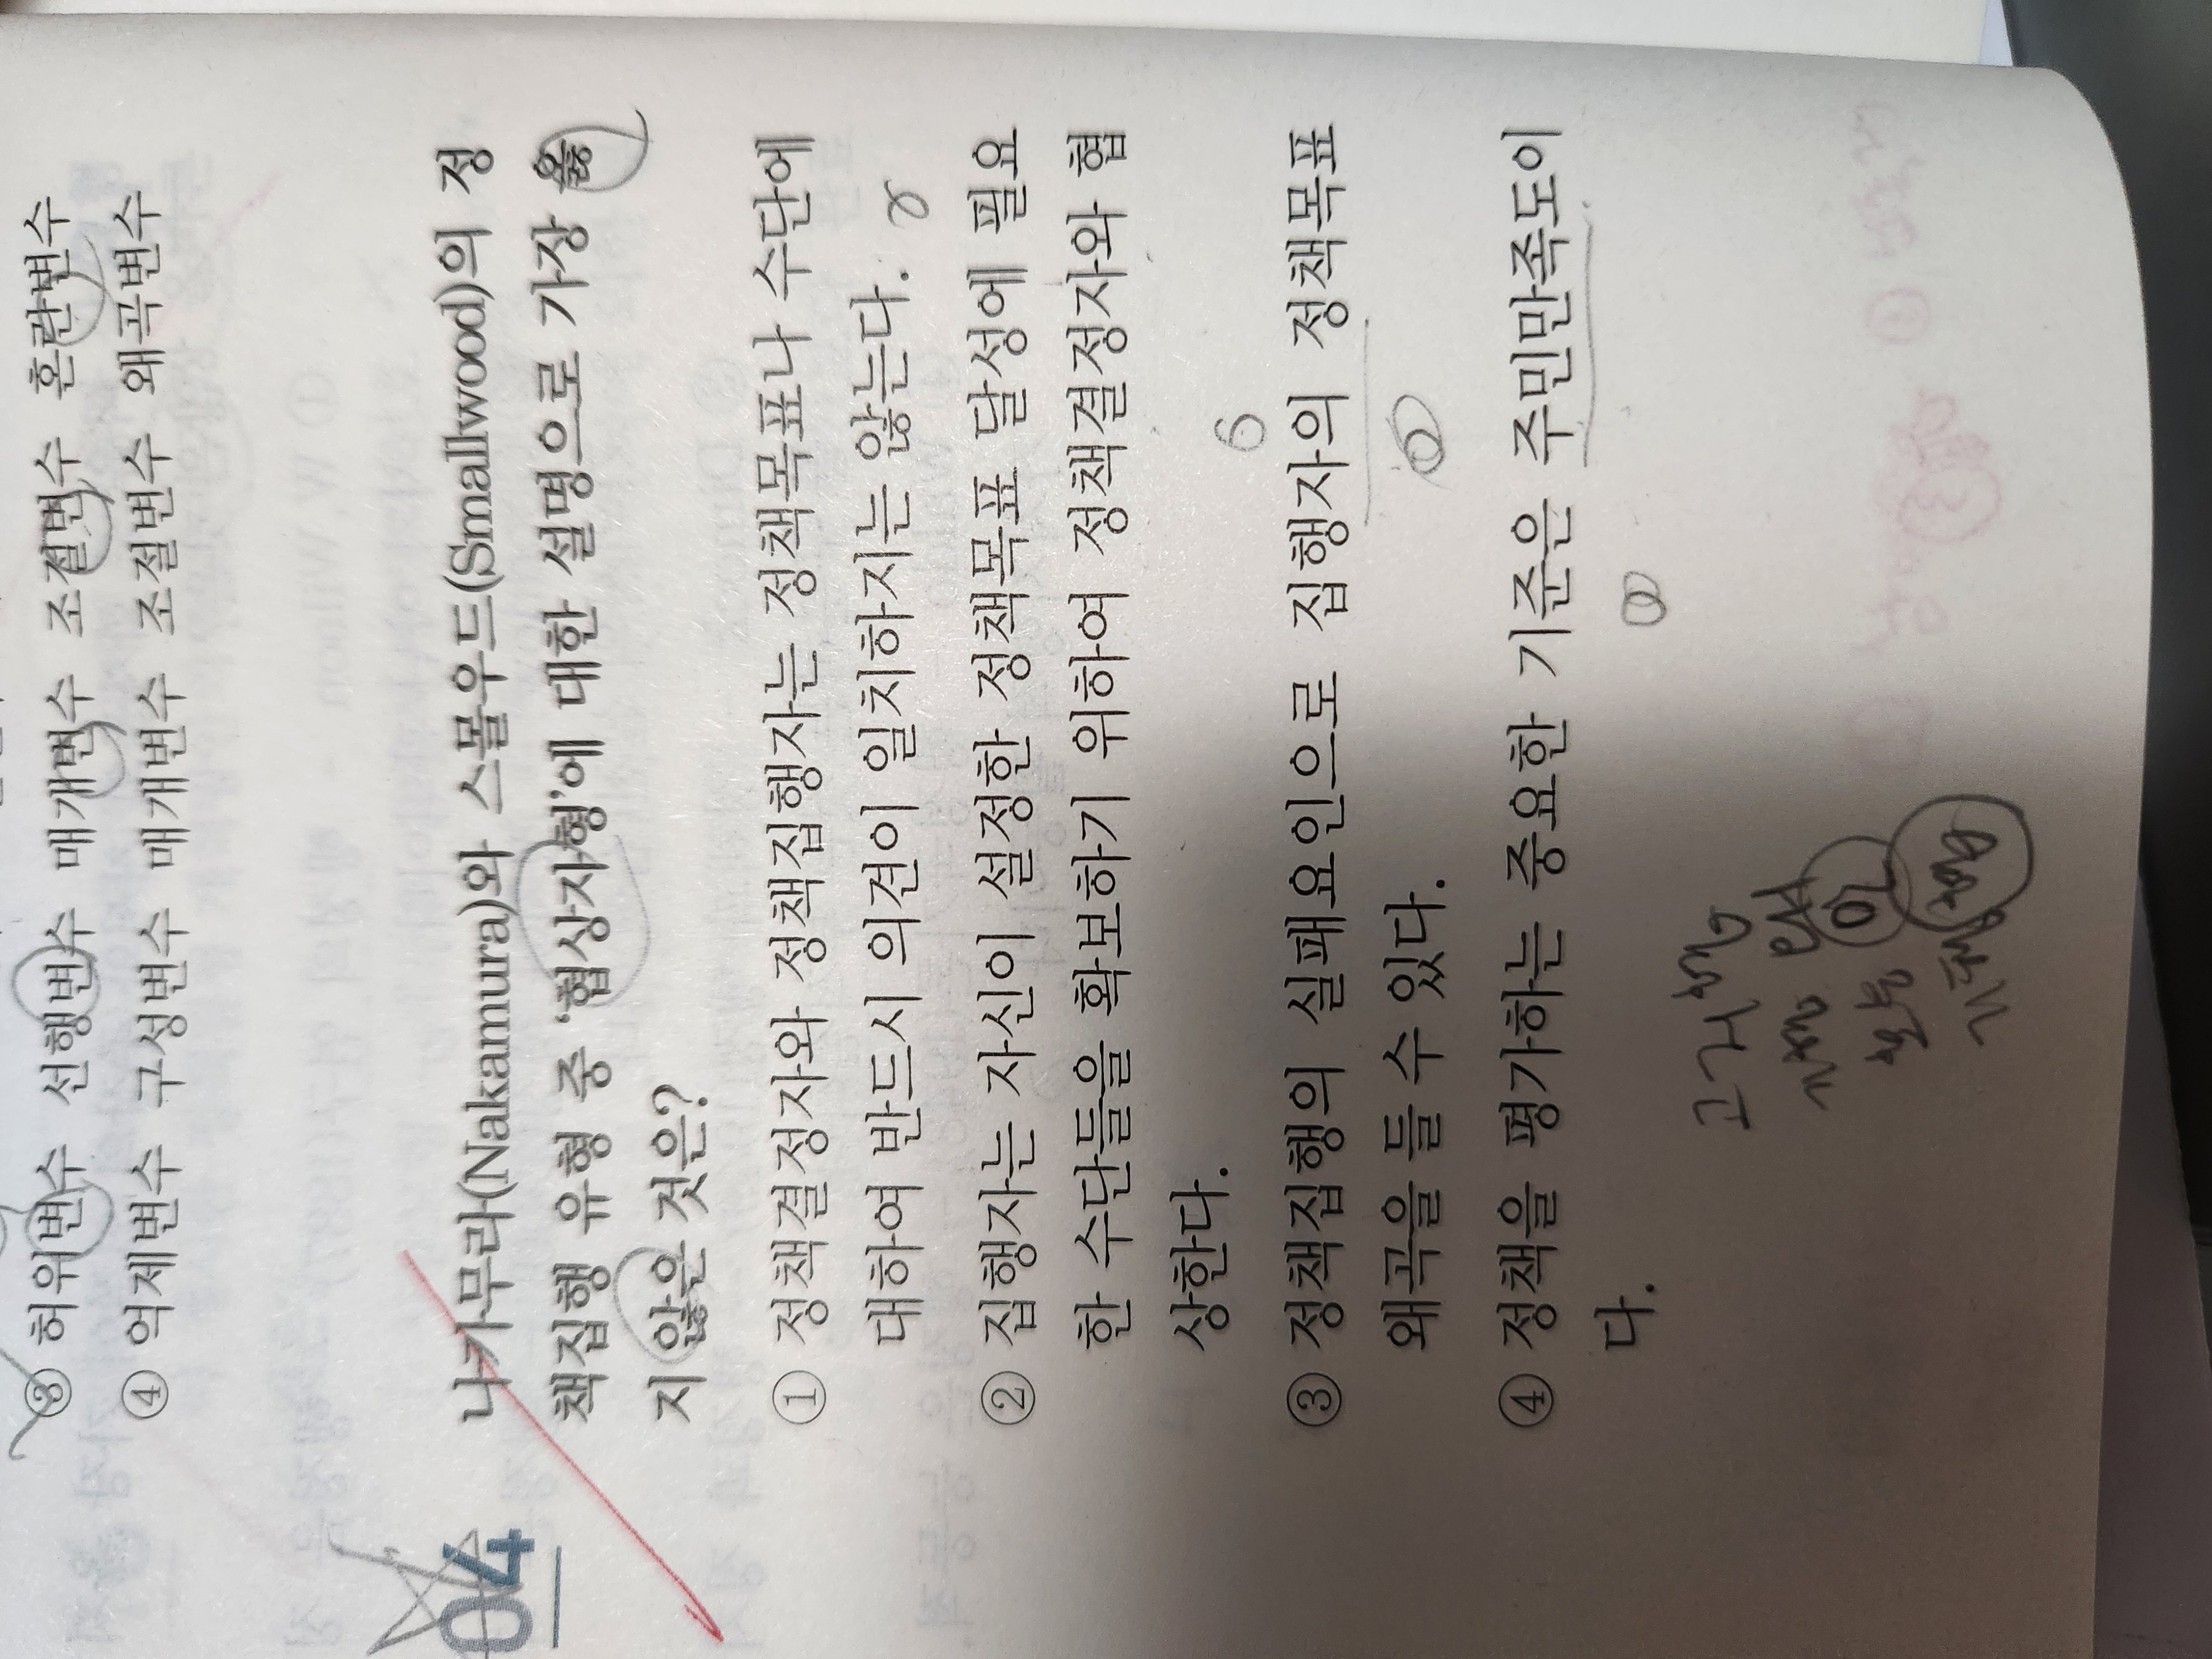 ③ 허위변수 선행변수 매개변수 조절변수 혼란변수
④ 억제변수 구성변수 매개변수 조절변수 왜곡변수
04
나카무라(Nakamura)와 스몰우드(Smallwood)의 정
책집행 유형 중 '협상자형'에 대한 설명으로 가장 옳
지 않은 것은?
① 정책결정자와 정책집행자는 정책목표나 수단에
대하여 반드시 의견이 일치하지는 않는다.
② 집행자는 자신이 설정한 정책목표 달성에 필요
한 수단들을 확보하기 위하여 정책결정자와 협
상한다.
③ 정책집행의 실패요인으로 집행자의 정책목표
왜곡을 들 수 있다.
④ 정책을 평가하는 중요한 기준은 주민만족도이
다.